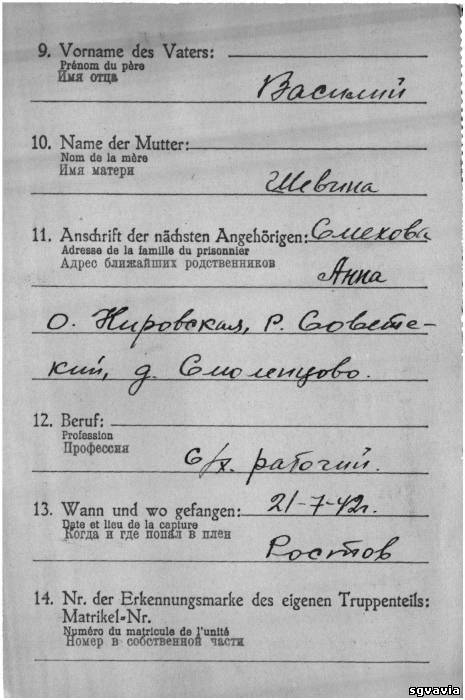 9. Vorname des Vaters:
Prénom du père
Имя отца
Василий
10. Name der Mutter:
Nom de la mère
Имя матери
Шевнина
11. Anschrift der nächsten Angehörigen: Смехова
Adresse de la famille du prisonnier
Адрес ближайших родственников
Анна
О. Кировская, Р. Советс-
кий, д. Смоленцово.
12. Beruf:
Profession
Профессия
С/х. рабочий.
13. Wann und wo gefangen: 21-7-42г.
Date et lieu de la capture
Когда и где попал в плен
Ростов
14. Nr. der Erkennungsmarke des eigenen Truppenteils:
Matrikel-Nr.
Numéro du matricule de l'unité
Номер в собственной части
sgvavia